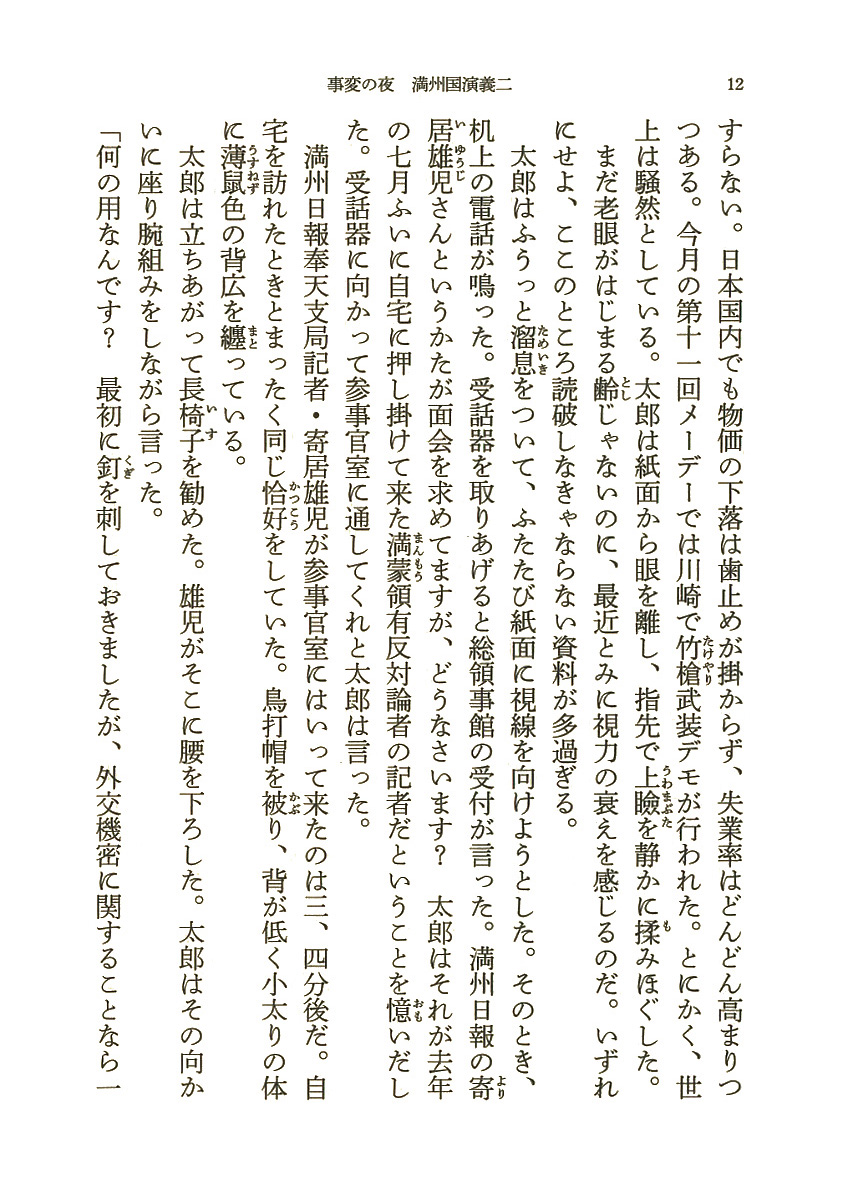 事変の夜　満州国演義二
12
すらない。日本国内でも物価の下落は歯止めが掛からず、失業率はどんどん高まりつ
つある。今月の第十一回メーデーでは川崎で竹槍武装デモが行われた。とにかく、世
上は騒然としている。太郎は紙面から眼を離し、指先で上瞼を静かに揉みほぐした。
まだ老眼がはじまる齢じゃないのに、最近とみに視力の衰えを感じるのだ。いずれ
にせよ、ここのところ読破しなきゃならない資料が多過ぎる。
太郎はふうっと溜息をついて、ふたたび紙面に視線を向けようとした。そのとき、
机上の電話が鳴った。受話器を取りあげると総領事館の受付が言った。満州日報の寄
居雄児さんというかたが面会を求めてますが、どうなさいます？　太郎はそれが去年
の七月ふいに自宅に押し掛けて来た満蒙領有反対論者の記者だということを憶いだし
た。受話器に向かって参事官室に通してくれと太郎は言った。
満州日報奉天支局記者・寄居雄児が参事官室にはいって来たのは三、四分後だ。自
宅を訪れたときとまったく同じ恰好をしていた。鳥打帽を被り、背が低く小太りの体
に薄鼠色の背広を纏っている。
太郎は立ちあがって長椅子を勧めた。雄児がそこに腰を下ろした。太郎はその向か
いに座り腕組みをしながら言った。
「何の用なんです？　最初に釘を刺しておきましたが、外交機密に関することなら一